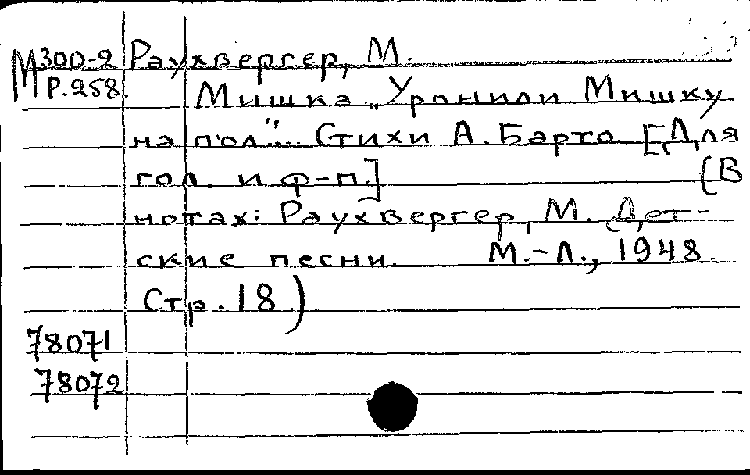 М300-2 Раухвергер, М.
Р.258 Мишка „Уронили Мишку
на пол"... Стихи А. Барто [Для
гол. и ф-п.] (В
нотах: Раухвергер, М. Дет-
ские песни. М.-Л., 1948.
Стр. 18)
78071
78072